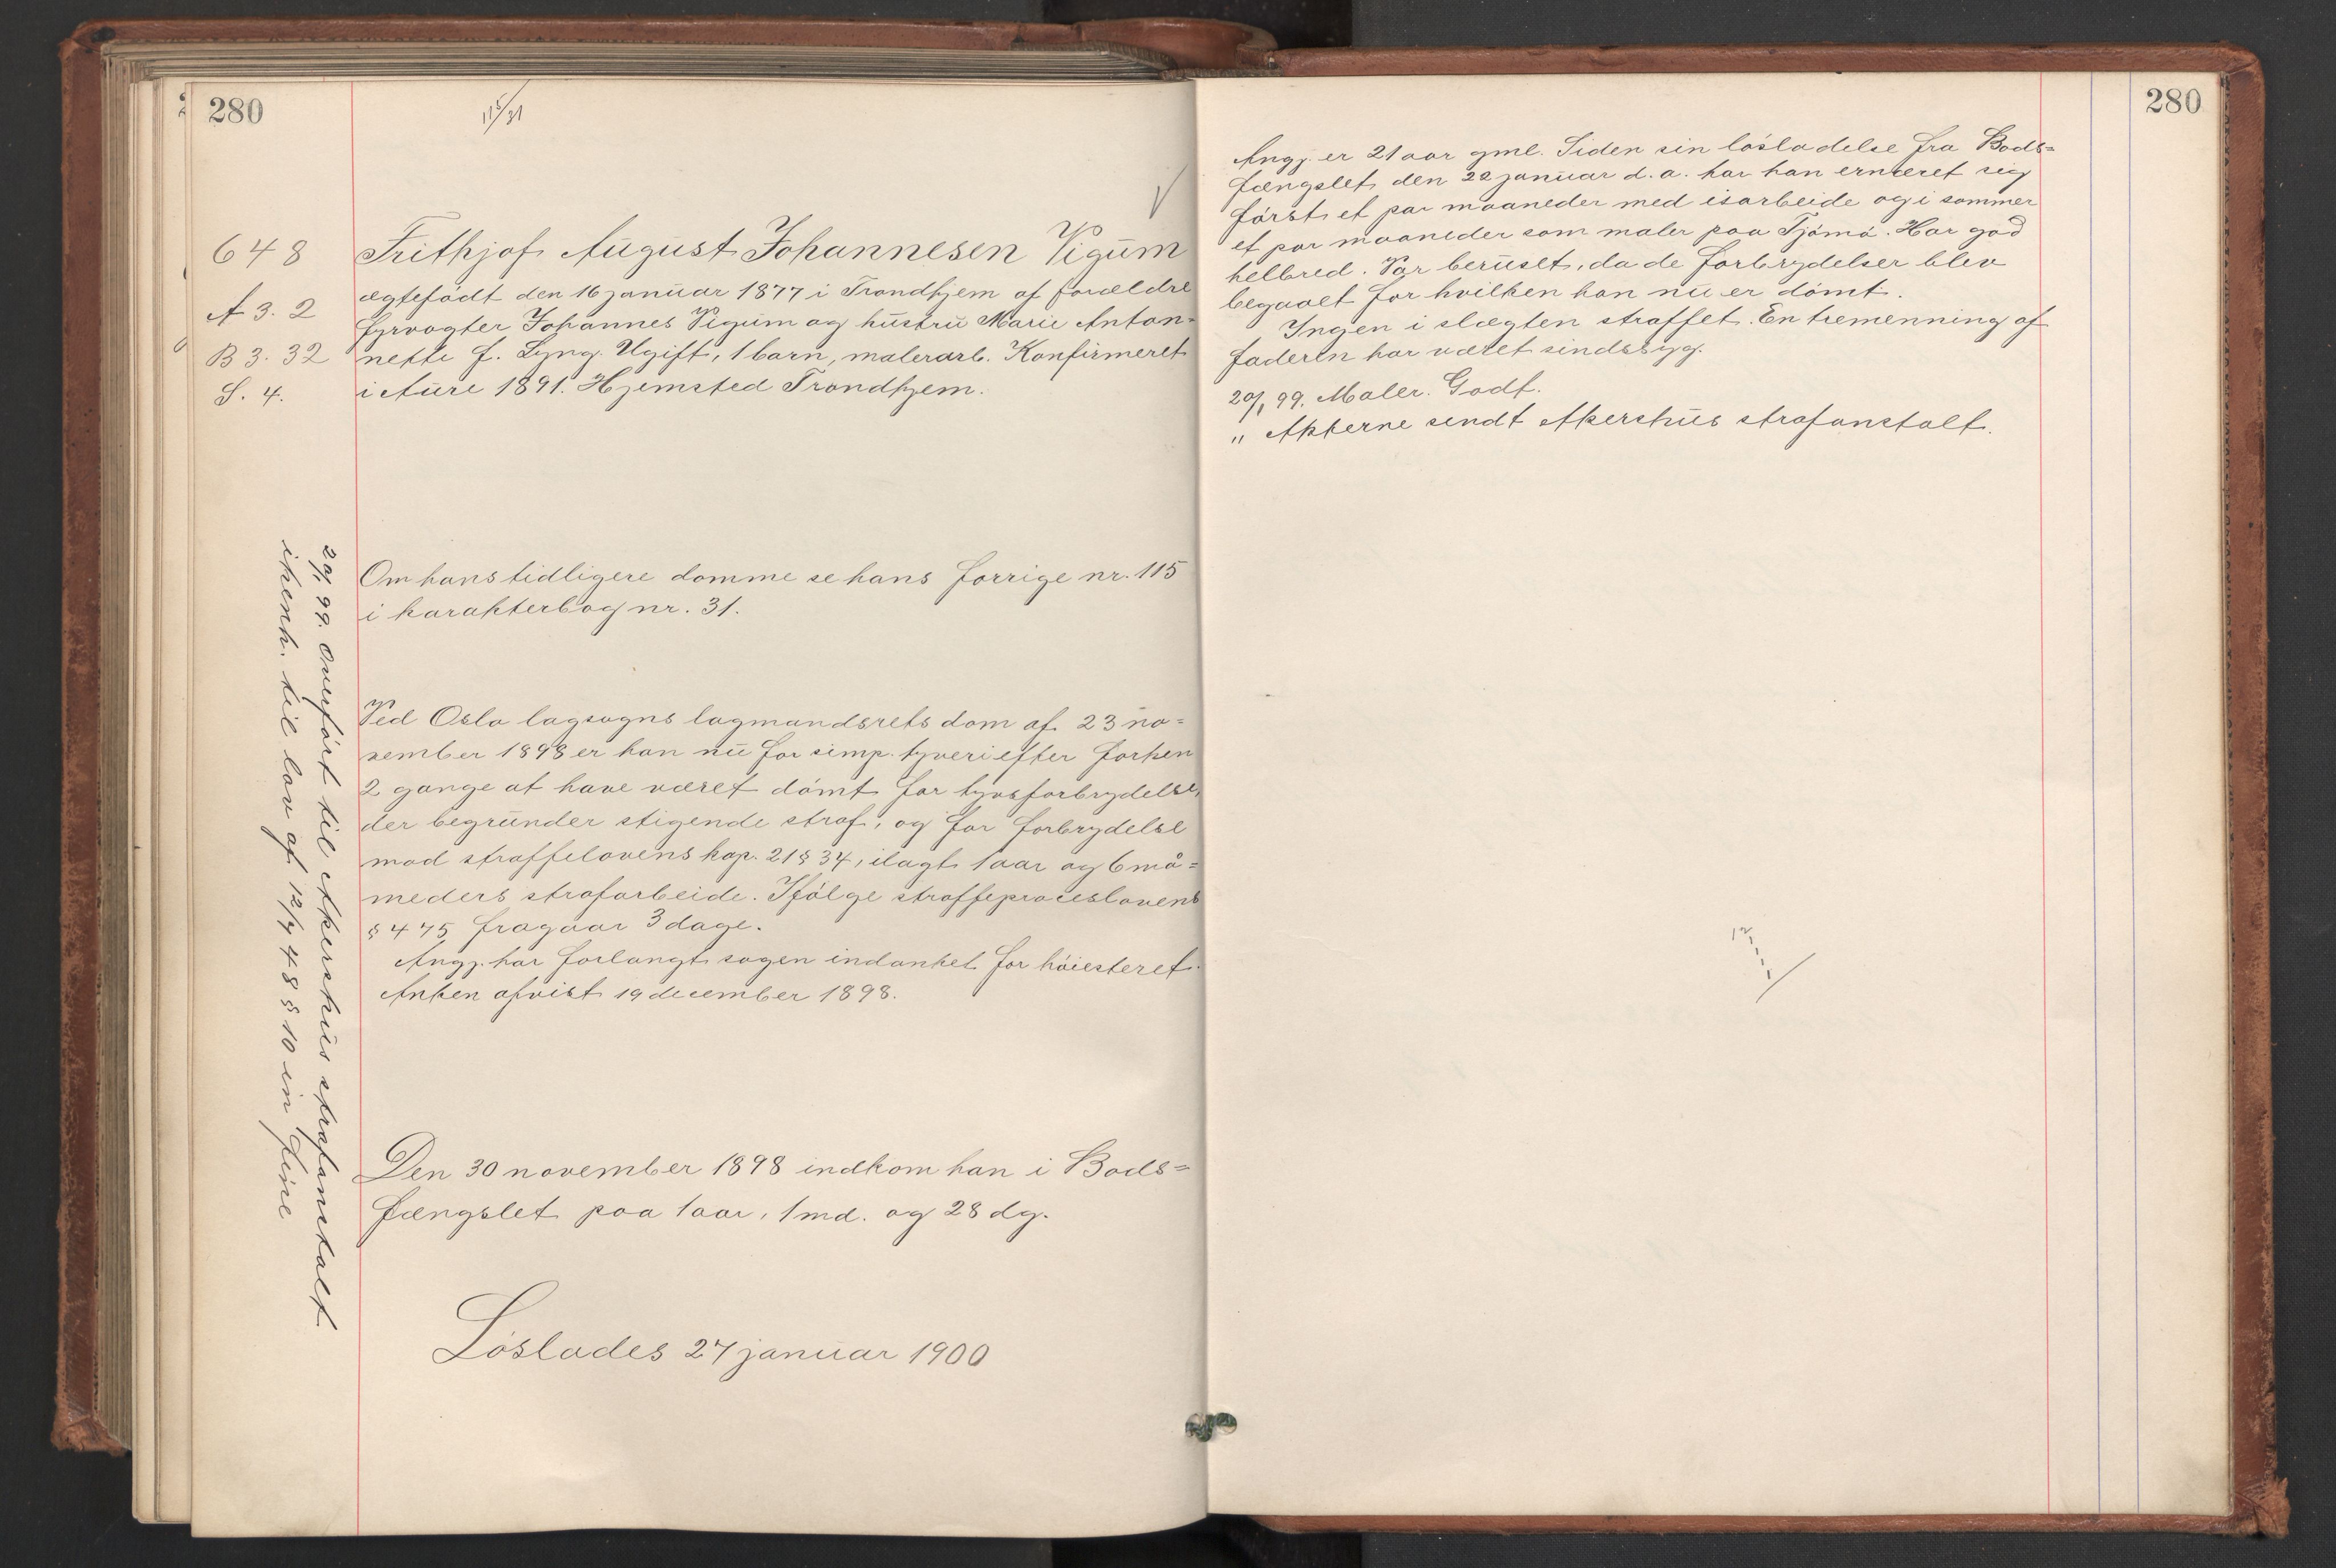 280
115/31
648
A 3. 2
B 3. 32
S. 4.
Frithjof August Johannesen Vigum
ægtefödt den 16 januar 1877 i Trondhjem af forældre
fyrvogter Johannes Vigum og hustru Marie Anton-
nette f. Lyng. Ugift, 1 barn, malerarb. Konfirmeret
i Aure 1891. Hjemsted Trondhjem.
Om hans tidligere domme se hans forrige nr. 115
i karakterbog nr. 31.
Ved Oslo lagsogns lagmandsrets dom af 23 no=
vember 1898 er han nu for simp. tyveri efter forhen
2 gange at have været dömt for tyvsforbrydelse,
der begrunder stigende straf, og for forbrydelse
mod straffelovens kap. 21 § 34, ilagt 1 aar og 6 må=
neders strafarbeide. Ifölge straffeproceslovens
§ 475 fragaar 3 dage.
Angj. har forlangt sagen indanket for höiesteret.
Anken afvist 19 december 1898.
Den 30 november 1898 indkom han i Bods=
fængslet paa 1 aar, 1 md. og 28 dg.
Löslades 27 januar 1900
20/1 99. Overfört til Akershus strafanstalt
ihenh. til lov af 12/7 48 § 10 in fine
280
Angj. er 21 aar gml. Siden sin lösladelse fra Bods=
fængslet den 22 januar d. a. har han ernæret sig
först et par maaneder med isarbeide og i sommer
et par maaneder som maler paa Tjömö. Har god
helbred. Var beruset, da de forbrydelser blev
begaaet for hvilken han nu er dömt.
Ingen i slægten straffet. En tremenning af
faderen har været sindssyg.
20/1 99. Maler. Godt.
" Akterne sendt Akershus strafanstalt.
12